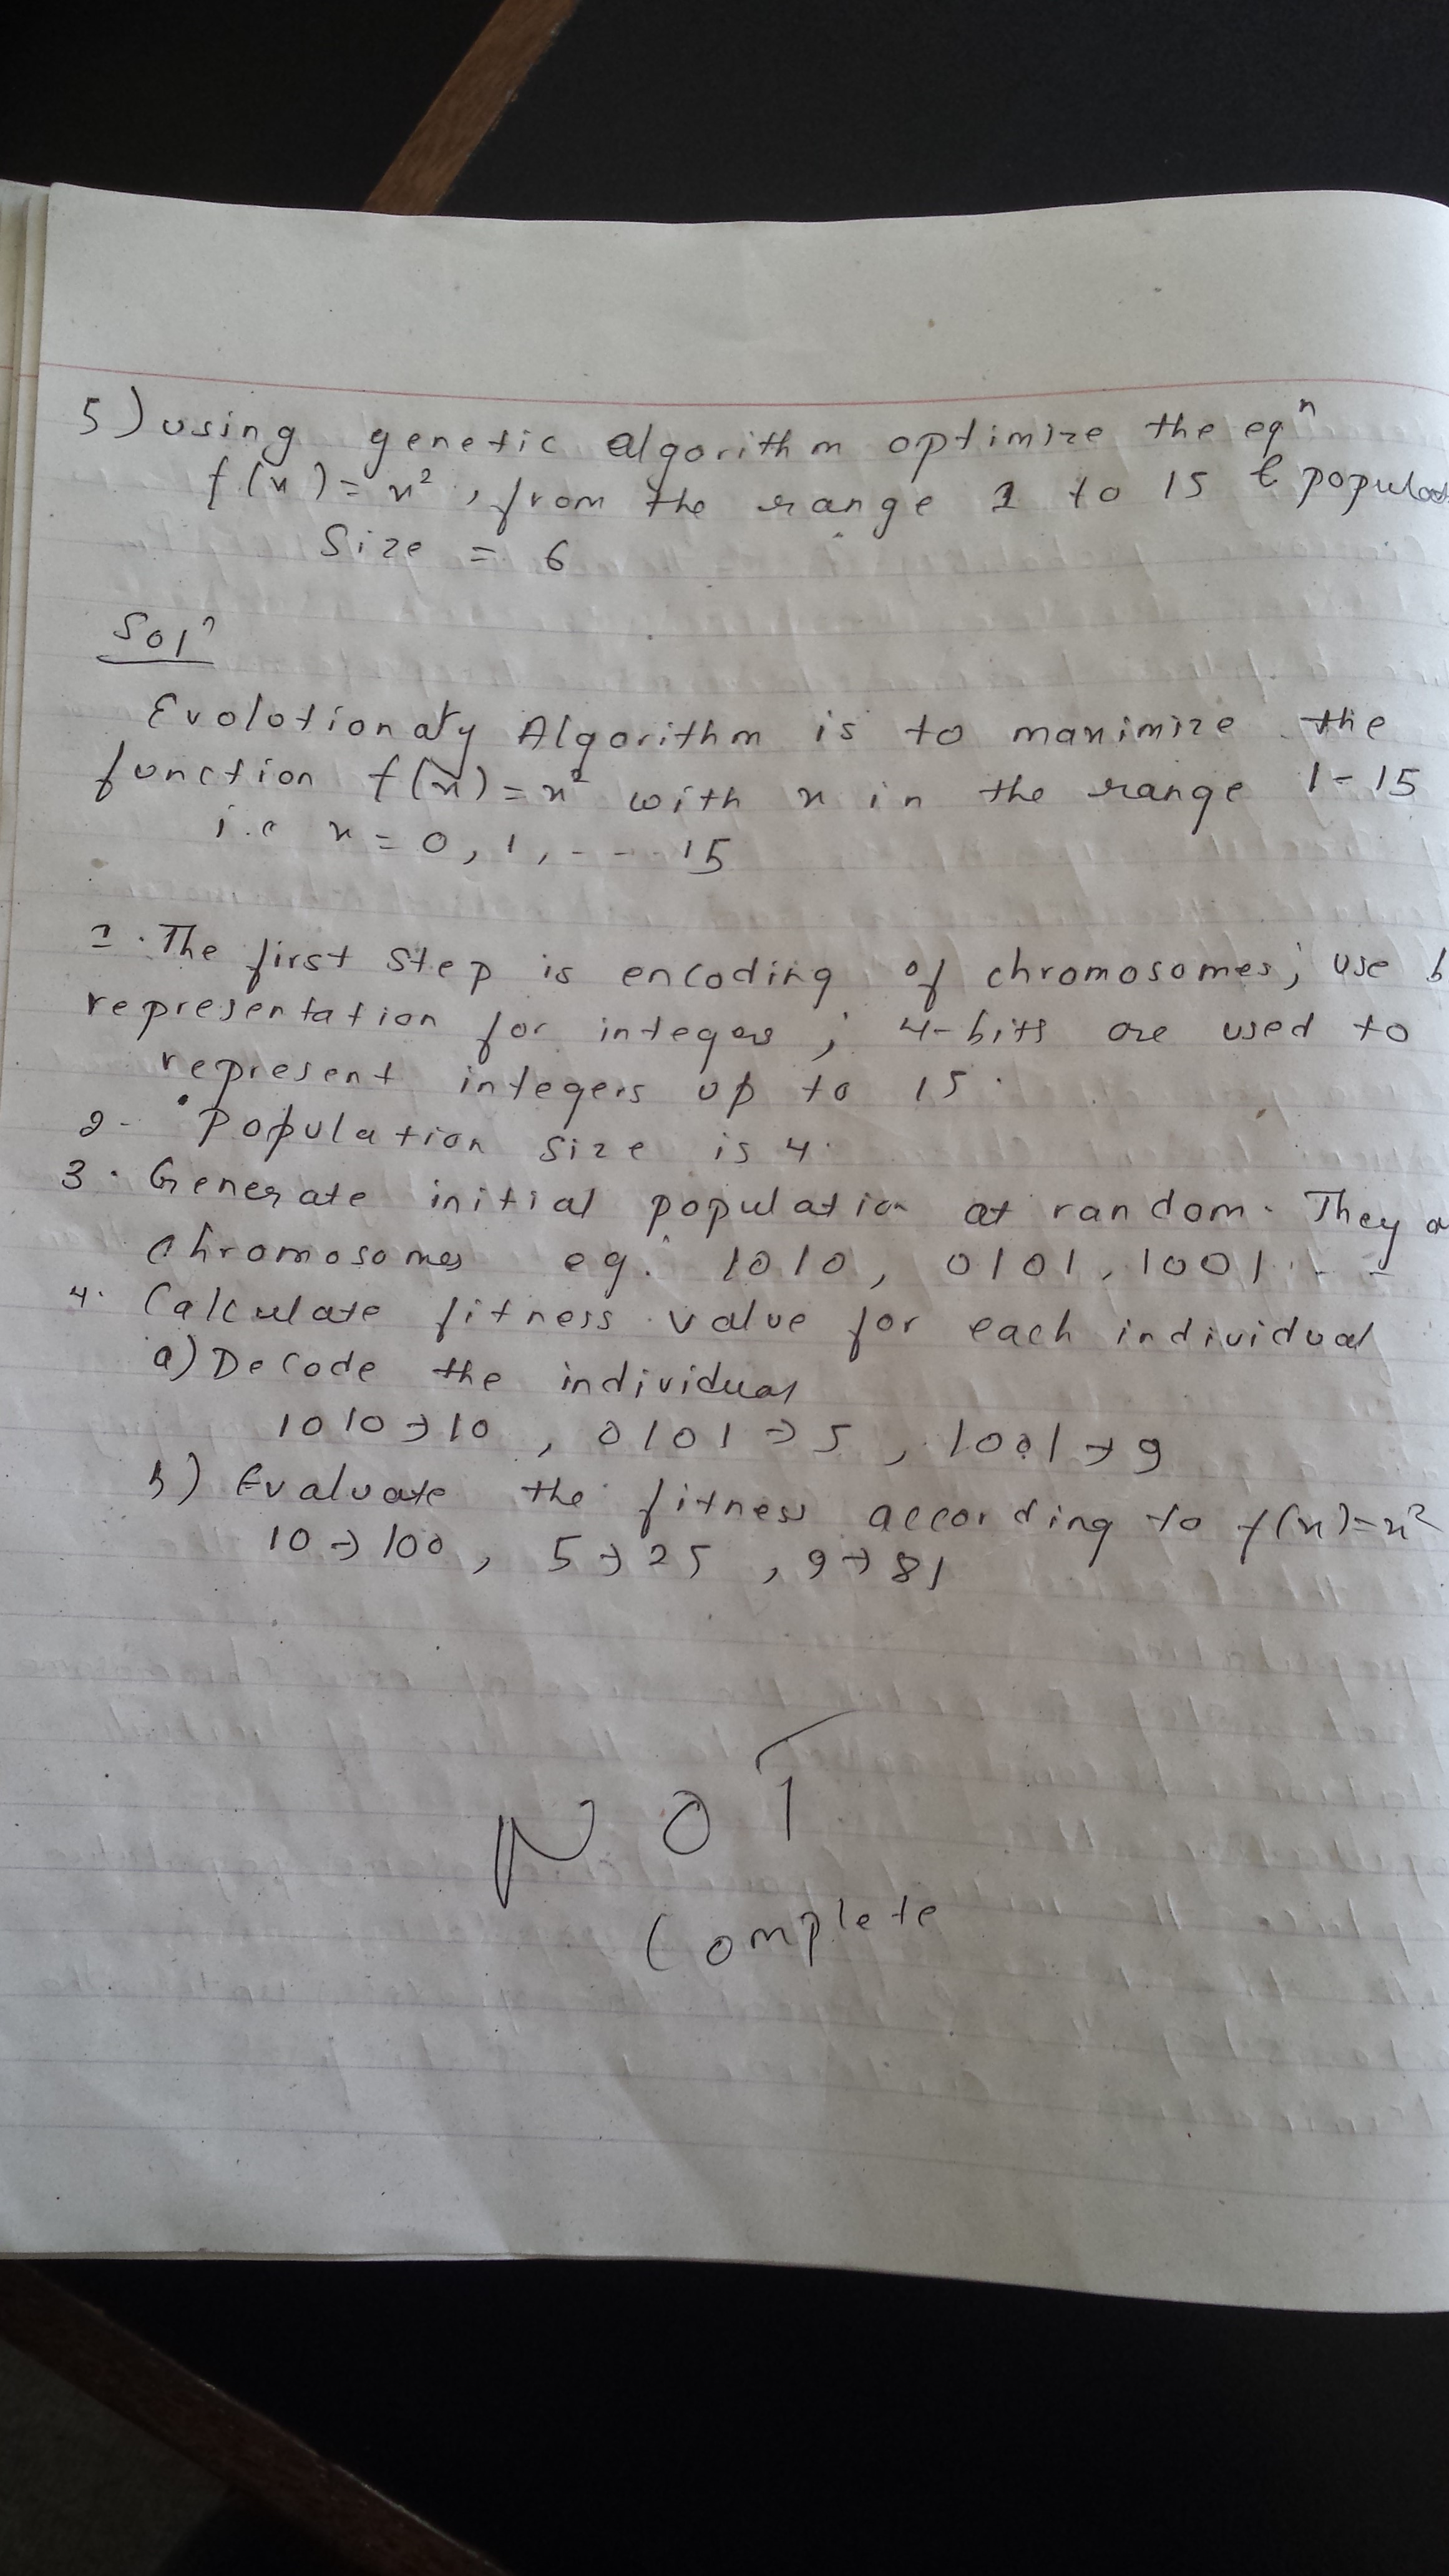 5) using genetic algorithm optimize the eqn
f(x) = x², from the range 1 to 15 & populat
Size = 6
Soln
Evolotionary Algorithm is to maximize the
function f(x) = x² with x in the range 1-15
i.e x = 0, 1, - - - 15
1. The first step is encoding of chromosomes; use b
representation for integers; 4-bits are used to
represent integers up to 15.
2- Population size is 4.
3. Generate initial population at random. They a
chromosomes eg. 1010, 0101, 1001 - - -
4. Calculate fitness value for each individual
a) Decode the individual
1010 → 10, 0101 → 5, 1001 → 9
b) Evaluate the fitness according to f(x)=x²
10 → 100, 5 → 25, 9 → 81
NOT
Complete